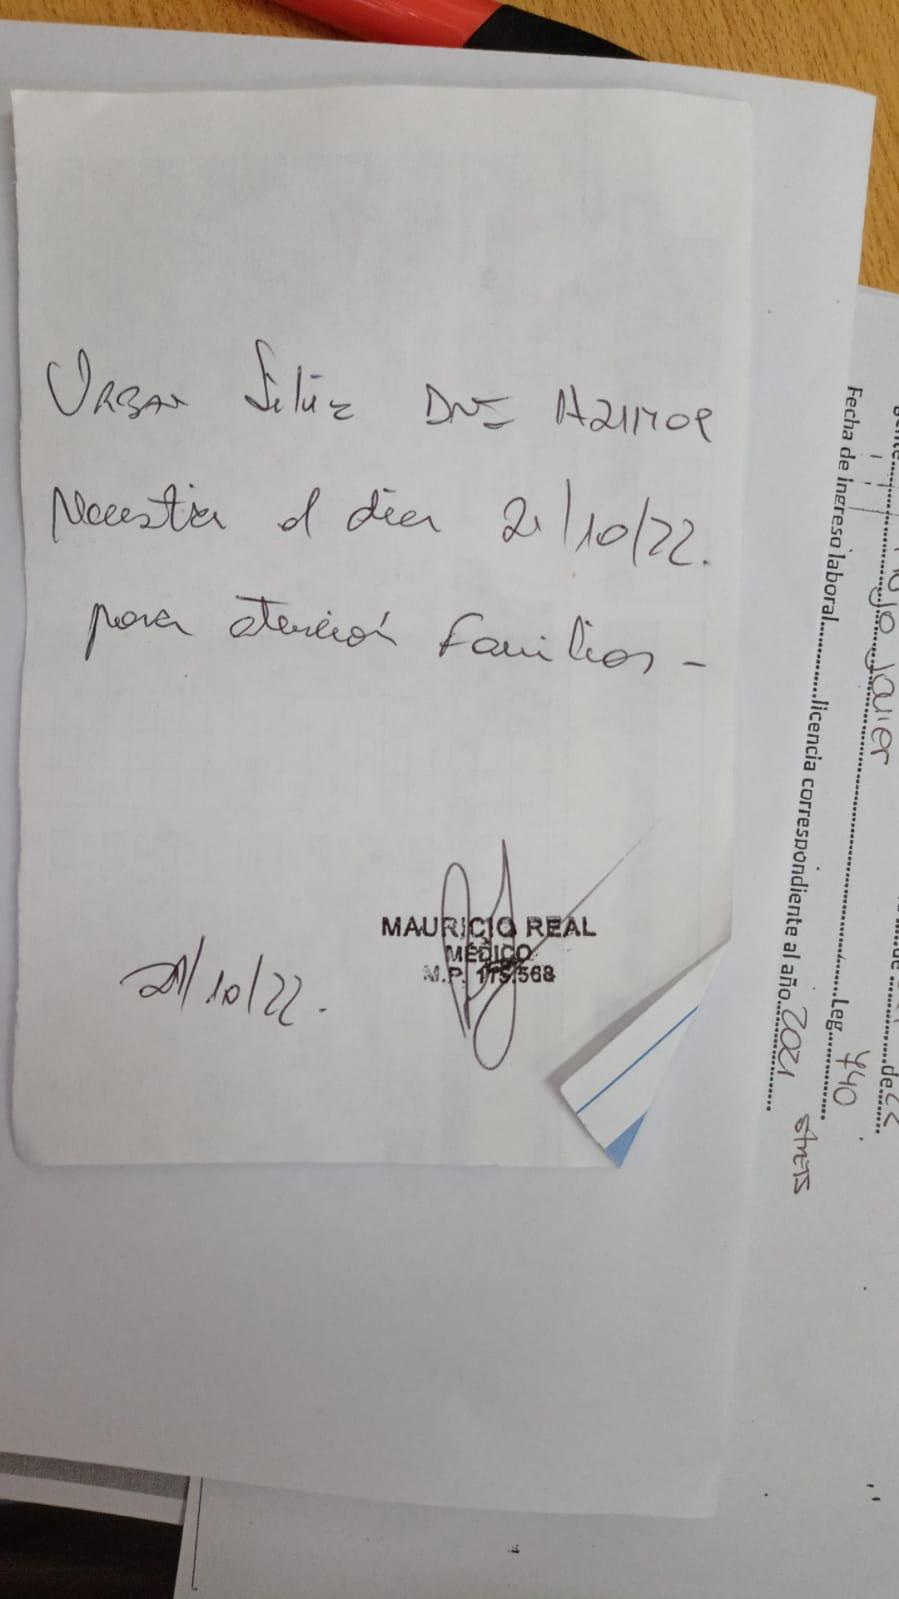 URBAN DNI
Necesita el día 21/10/22.
para atención familiar -
MAURICIO REAL
MÉDICO
M.P. 115.568
21/10/22.
Fecha de ingreso laboral..............licencia correspondiente al año 2021
Javier
Leg. 440
de